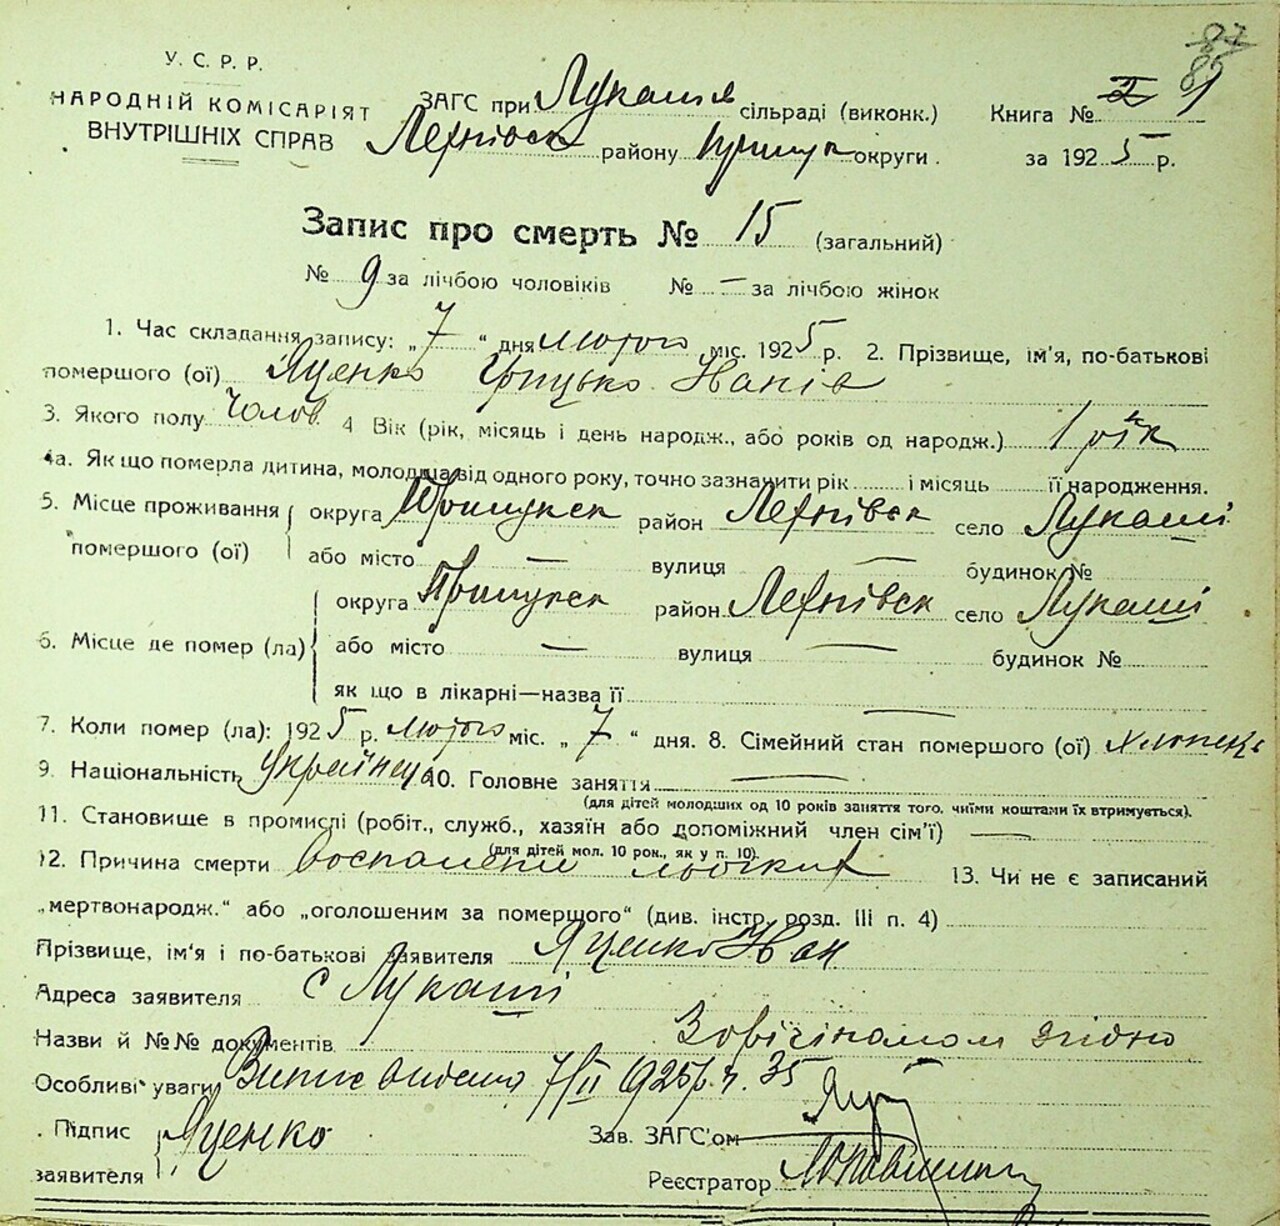 87
У. С. Р. Р.
НАРОДНІЙ КОМІСАРІЯТ
ВНУТРІШНІХ СПРАВ
ЗАГС при Лукашів сільраді (виконк.)
Книга № 2
89
районy округи.
за 1925 р.
Запис про смерть № 15 (загальний)
№ 9 за лічбою чоловіків № — за лічбою жінок
1. Час складання запису: „ 7 “ дня лютого міс. 1925 р. 2. Прізвище, ім'я, по-батькові
помершого (ої) Яценко Грицько Іванів
3. Якого полу Чолов 4 Вік (рік, місяць і день народж., або років од народж.) 1 рік
4а. Як що померла дитина, молодша від одного року, точно зазначити рік і місяць її народження.
5. Місце проживання помершого (ої) округа Прилуцьк район село Лукаші
або місто — вулиця — будинок №
6. Місце де помер (ла) округа Прилуцьк район село Лукаші
або місто — вулиця — будинок №
як що в лікарні—назва її —
7. Коли помер (ла): 1925 р. лютого міс. „ 7 “ дня. 8. Сімейний стан помершого (ої) хлопець
9. Національність Українець 10. Головне заняття —
(для дітей молодших од 10 років заняття того, чиїми коштами їх втримується).
11. Становище в промислі (робіт., служб., хазяїн або допоміжний член сім'ї) —
(для дітей мол. 10 рок., як у п. 10).
12. Причина смерти воспалени льогких 13. Чи не є записаний
„мертвонародж.“ або „оголошеним за помершого“ (див. інстр. розд. III п. 4)
Прізвище, ім'я і по-батькові заявителя Яценко Иван
Адреса заявителя с Лукаші
Назви й №№ документів
З оригіналом згідно
Особливі уваги Випис видано 7/II 1925 р. ч. 35
Підпис заявителя Яценко
Зав. ЗАГС'ом
Реєстратор